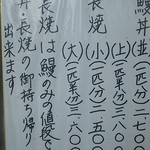 鰻丼(並)(一匹分)二、七〇
(上)(一匹半分)三、
長焼(小)(一匹分)二、五〇〇
(大)(一匹半分)三、六〇〇
長焼は鰻のみの値段で
丼・長焼の御持ち帰り
出来ます